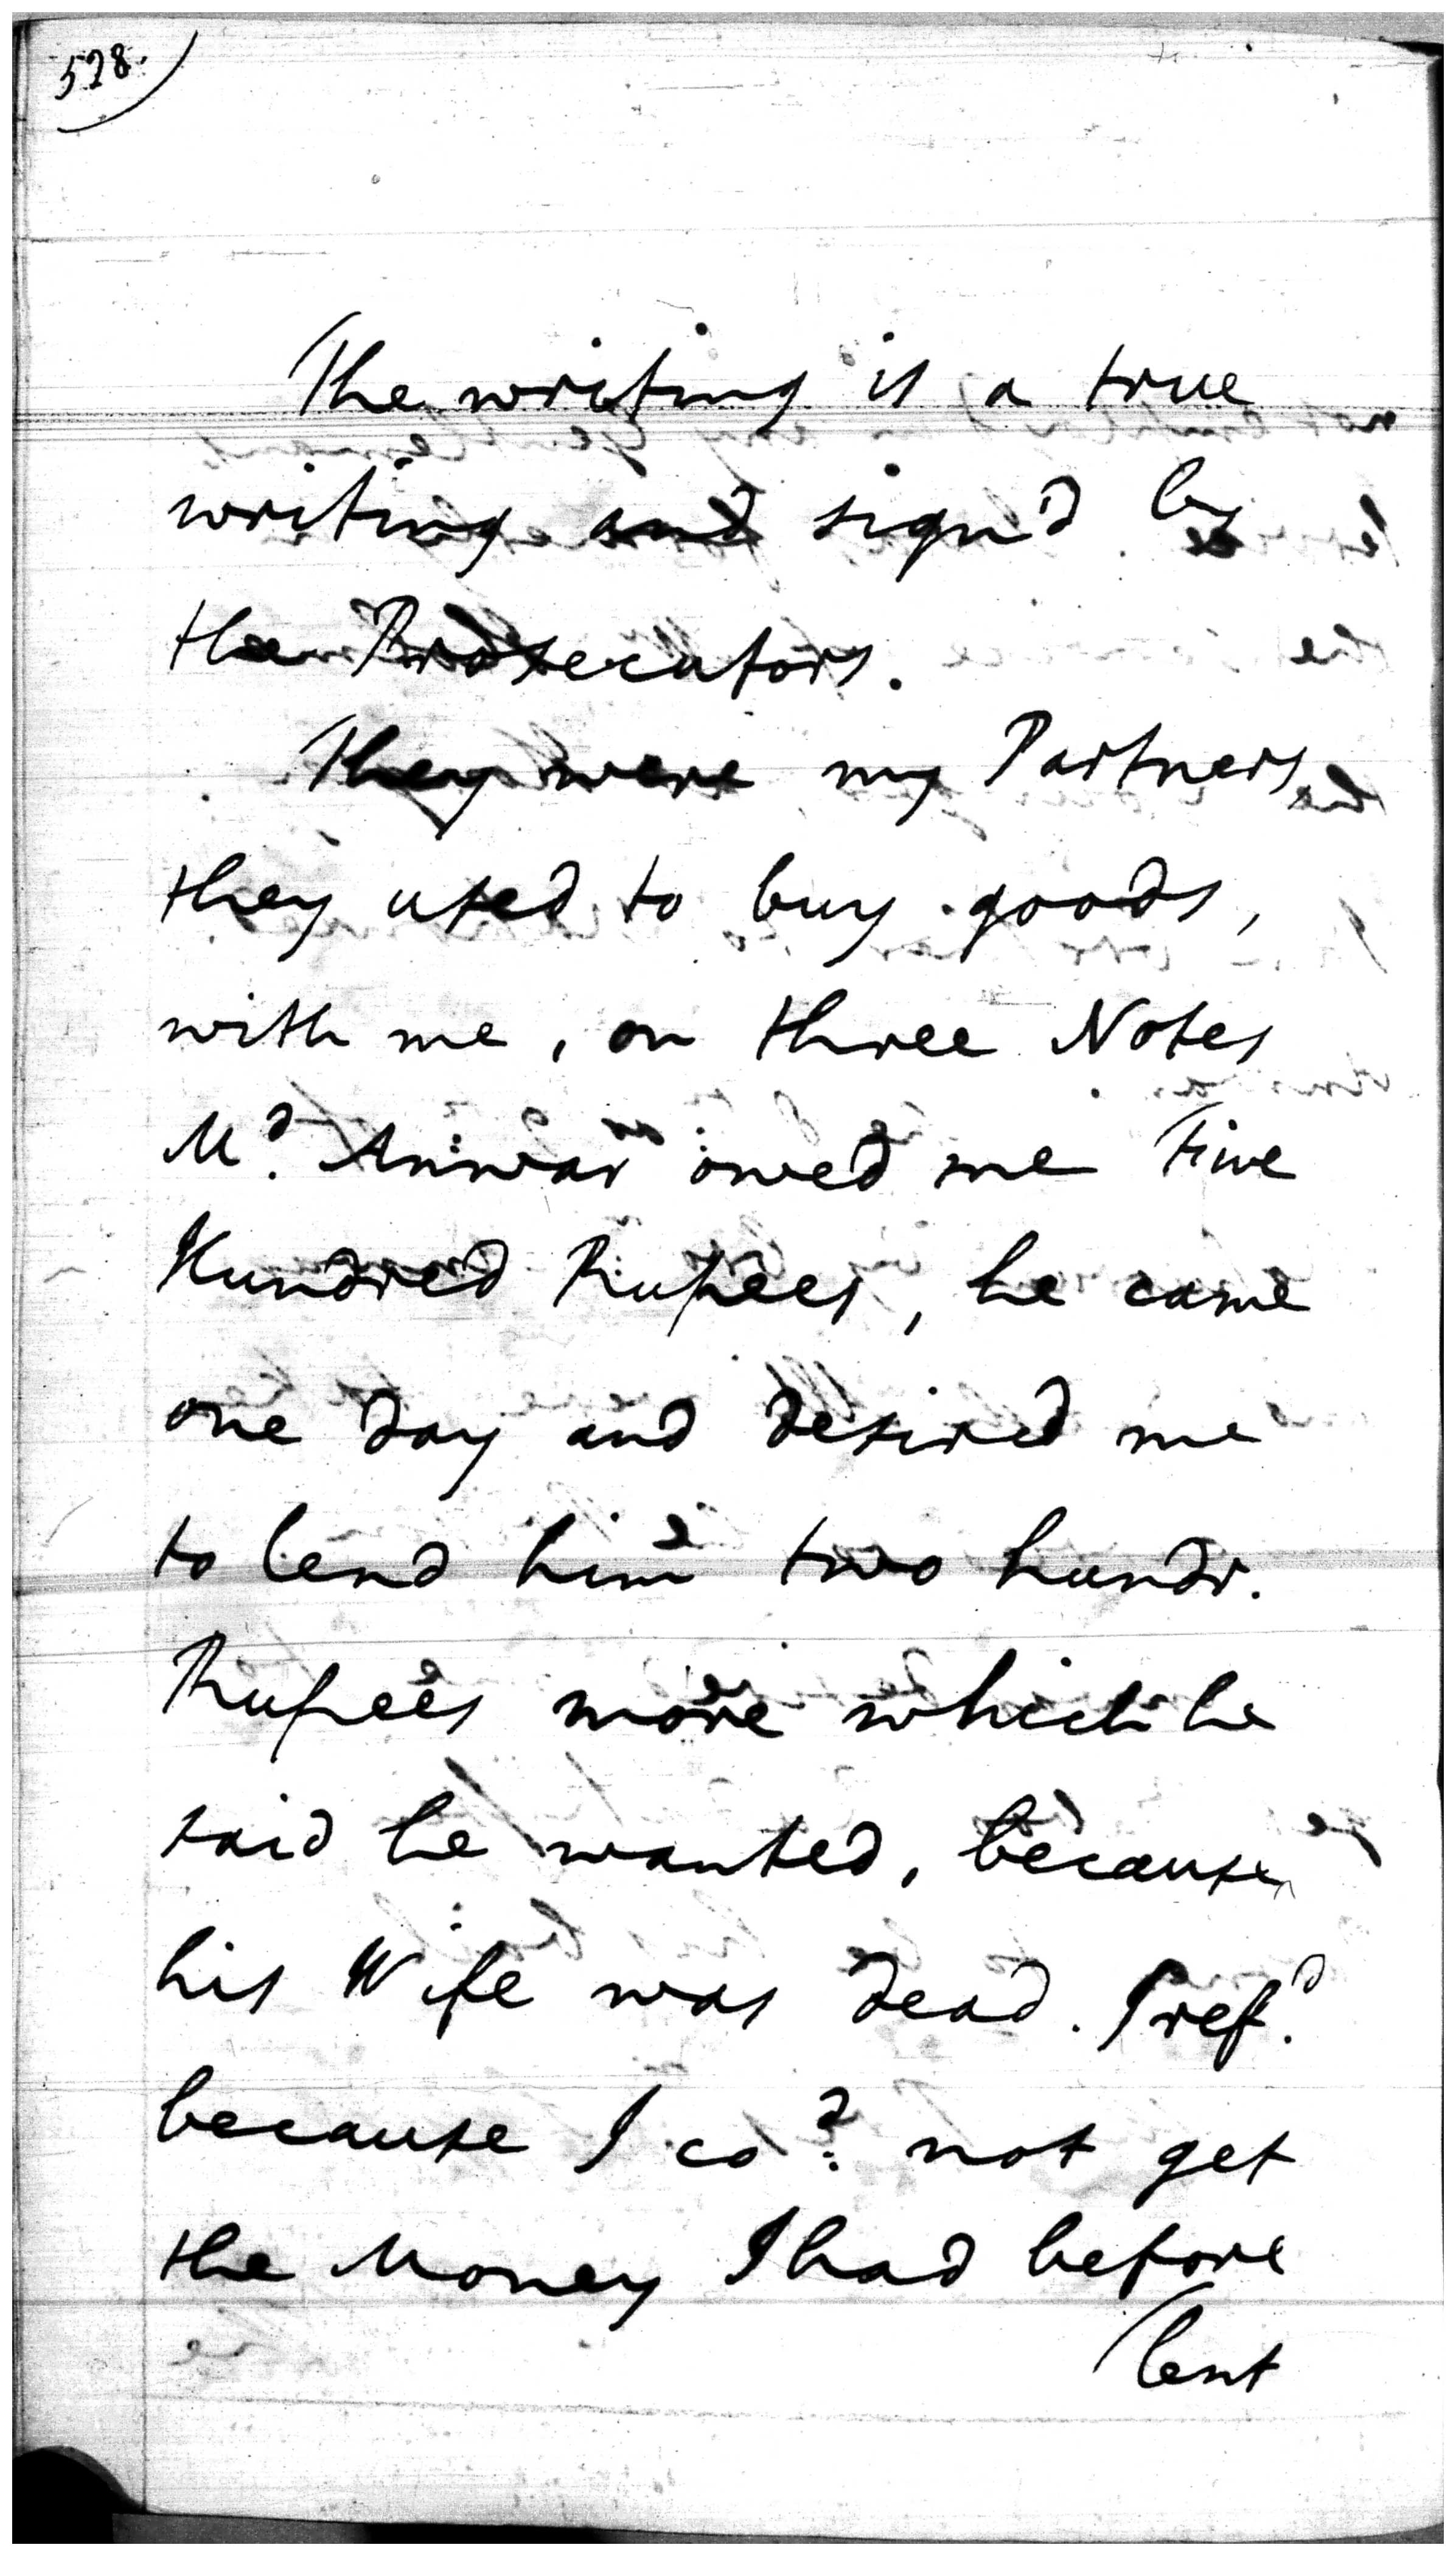 528.
The writing is a true
writing and sign'd by
the Prosecutors.
They were my Partners,
they used to buy goods,
with me, on three Notes
Md. Anwar owed me Five
Hundred Rupees, he came
one day and desired me
to lend him two hundr.
Rupees more which he
said he wanted, because
his Wife was dead. I refd.
because I cod. not get
the Money I had before
lent